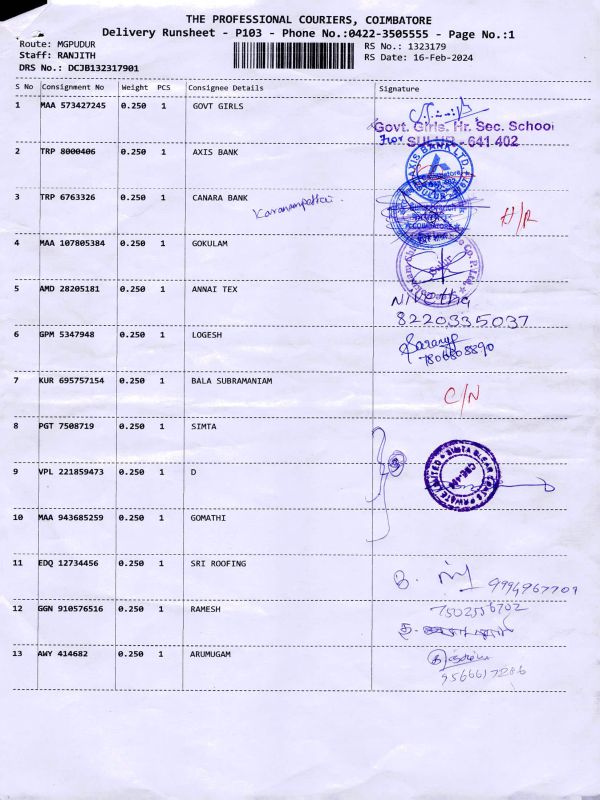 THE PROFESSIONAL COURIERS, COIMBATORE
Delivery Runsheet - P103 - Phone No.:0422-3505555 - Page No.:1
Route: MGPUDUR
Staff: RANJITH
DRS No.: DCJB132317901
RS No.: 1323179
RS Date: 16-Feb-2024
S No Consignment No Weight PCS Consignee Details Signature
1 MAA 573427245 0.250 1 GOVT GIRLS
Govt. Girls. Hr. Sec. School
SULUR - 641 402
For
2 TRP 8000406 0.250 1 AXIS BANK
AXIS BANK LTD.
3 TRP 6763326 0.250 1 CANARA BANK
Karanampettai.
H/R
4 MAA 107805384 0.250 1 GOKULAM
Sulur
5 AMD 28205181 0.250 1 ANNAI TEX
Nivetha
8220335037
6 GPM 5347948 0.250 1 LOGESH
Saranya
7806808890
7 KUR 695757154 0.250 1 BALA SUBRAMANIAM
C/N
8 PGT 7508719 0.250 1 SIMTA
9 VPL 221859473 0.250 1 D
10 MAA 943685259 0.250 1 GOMATHI
11 EDQ 12734456 0.250 1 SRI ROOFING
9994967709
12 GGN 910576516 0.250 1 RAMESH
7502556702
13 AWY 414682 0.250 1 ARUMUGAM
9566617286